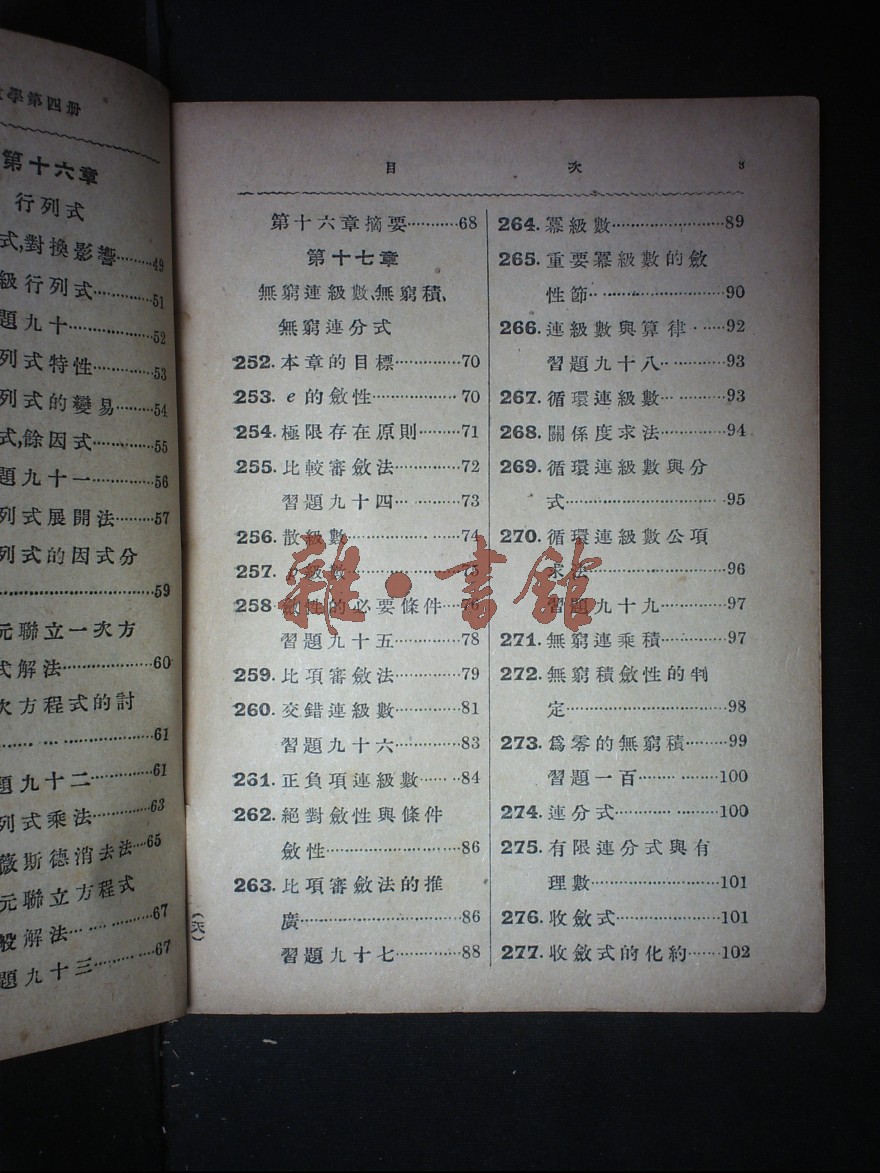 學第四册
第十六章
行列式
式,對換影響………49
級行列式………51
題九十………52
列式特性………53
列式的變易………54
式,餘因式………55
題九十一………56
列式展開法………57
列式的因式分
………59
元聯立一次方
式解法………60
次方程式的討
………61
題九十二………61
列式乘法………63
薇斯德消去法…65
元聯立方程式
般解法………67
題九十三………67
目 次 3
第十六章摘要………68
第十七章
無窮連級數、無窮積、
無窮連分式
252. 本章的目標………70
253. e的斂性………70
254. 極限存在原則………71
255. 比較審斂法………72
習題九十四………73
256. 散級數………74
257. p級數………75
258 斂性的必要條件…76
習題九十五………78
259. 比項審斂法………79
260. 交錯連級數………81
習題九十六………83
261. 正負項連級數………84
262. 絕對斂性與條件
斂性………86
263. 比項審斂法的推
廣………86
習題九十七………88
(六)
264. 冪級數………89
265. 重要冪級數的斂
性節………90
266. 連級數與算律………92
習題九十八………93
267. 循環連級數………93
268. 關係度求法………94
269. 循環連級數與分
式………95
270. 循環連級數公項
求法………96
習題九十九………97
271. 無窮連乘積………97
272. 無窮積斂性的判
定………98
273. 爲零的無窮積………99
習題一百………100
274. 連分式………100
275. 有限連分式與有
理數………101
276. 收斂式………101
277. 收斂式的化約……102
雜·書館